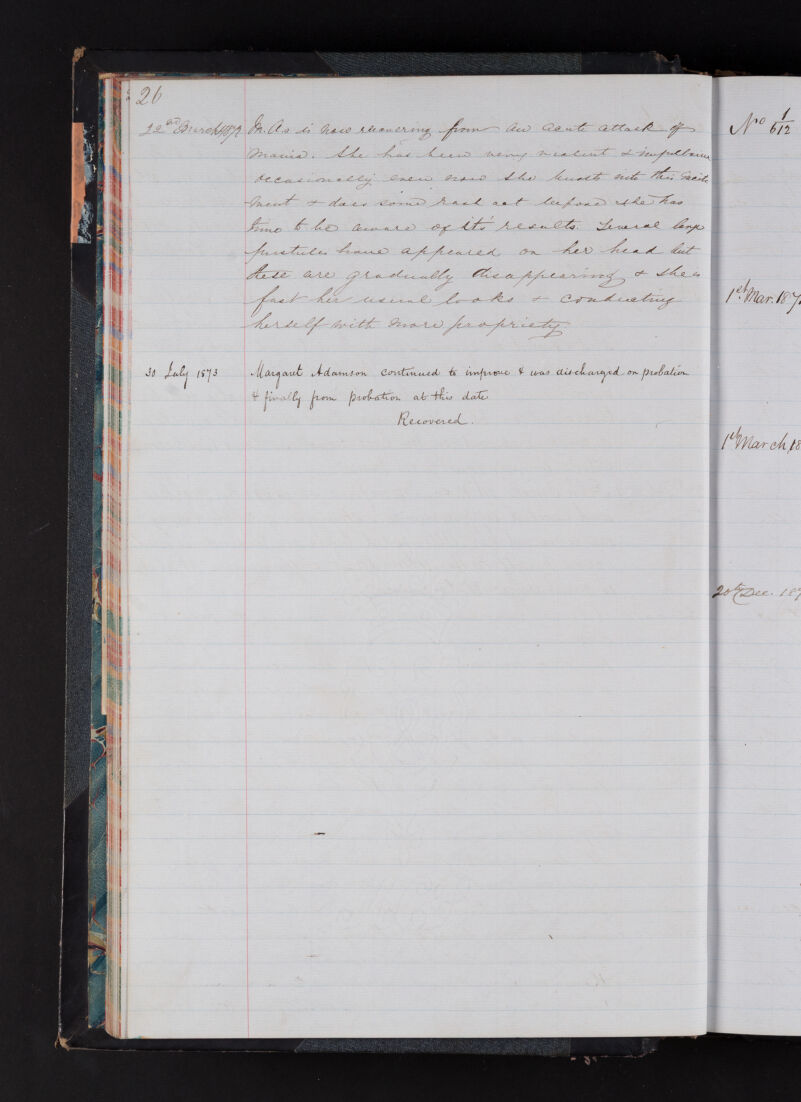 26
22nd March 1872 M. A. is now recovering from an acute attack of
mania. She has been very violent & impulsive
occasionally even now she bursts into this excite
ment & does some rash act before she has
time to be aware of it's results. Several large
pustules have appeared on her head but
these are gradually disappearing & she is
fast her usual looks & conducting
herself with more propriety
30 July 1873 Margaret Adamson continued to improve & was discharged on probation
& finally from probation at this date
Recovered.
No 1/612
1st Mar. 187
1st March 18
20th Dec. 187